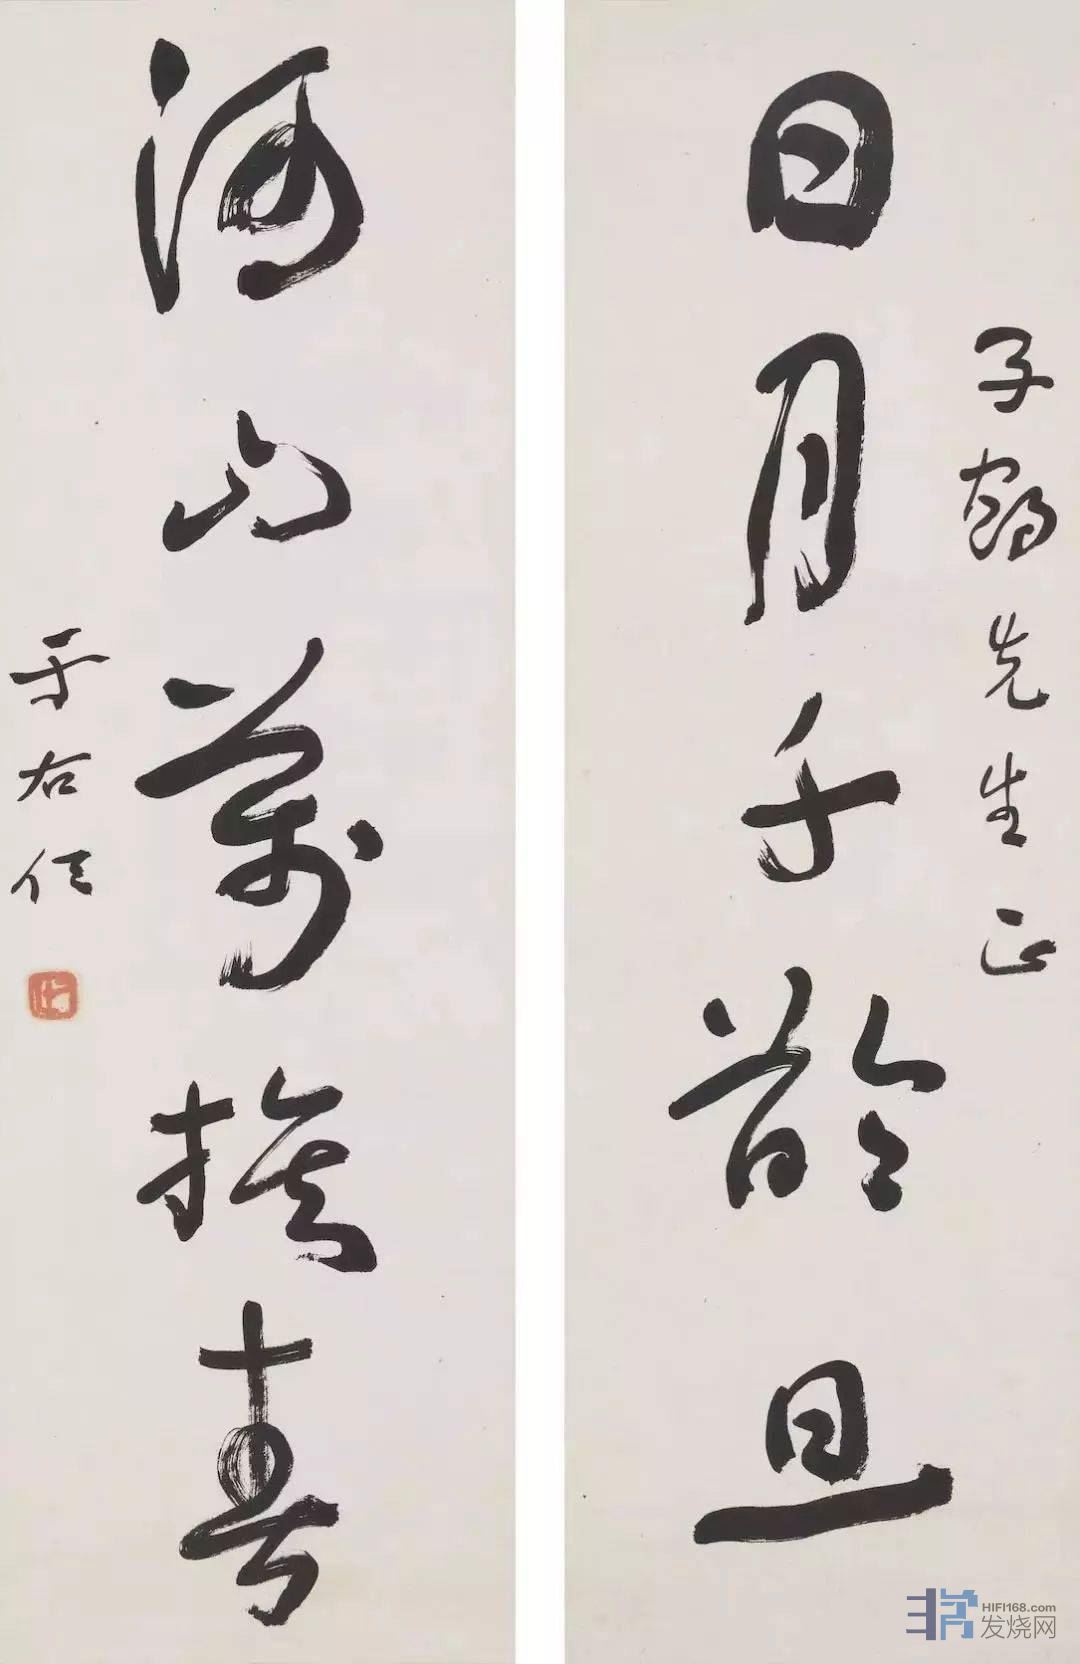 子鶴先生正
日月千齡旦
河山萬族春
于右任
HIFI168.com
发烧网